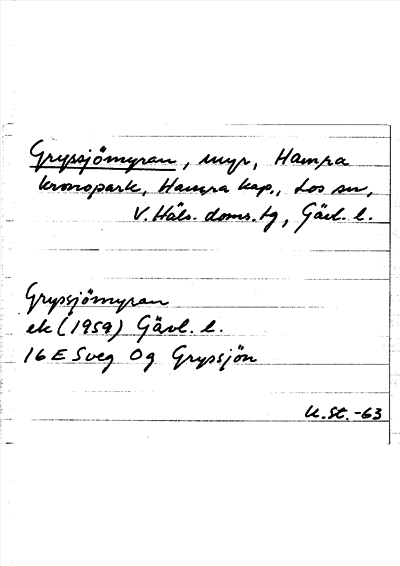 Grypsjömyran, myr, Hamra
kronopark, Hamra kap., Los sn,
V. Häls. doms. tg, Gävl. l.
Grypsjömyran
ek (1959) Gävl. l.
16 E Sveg 0g Grypsjön
U.St. -63